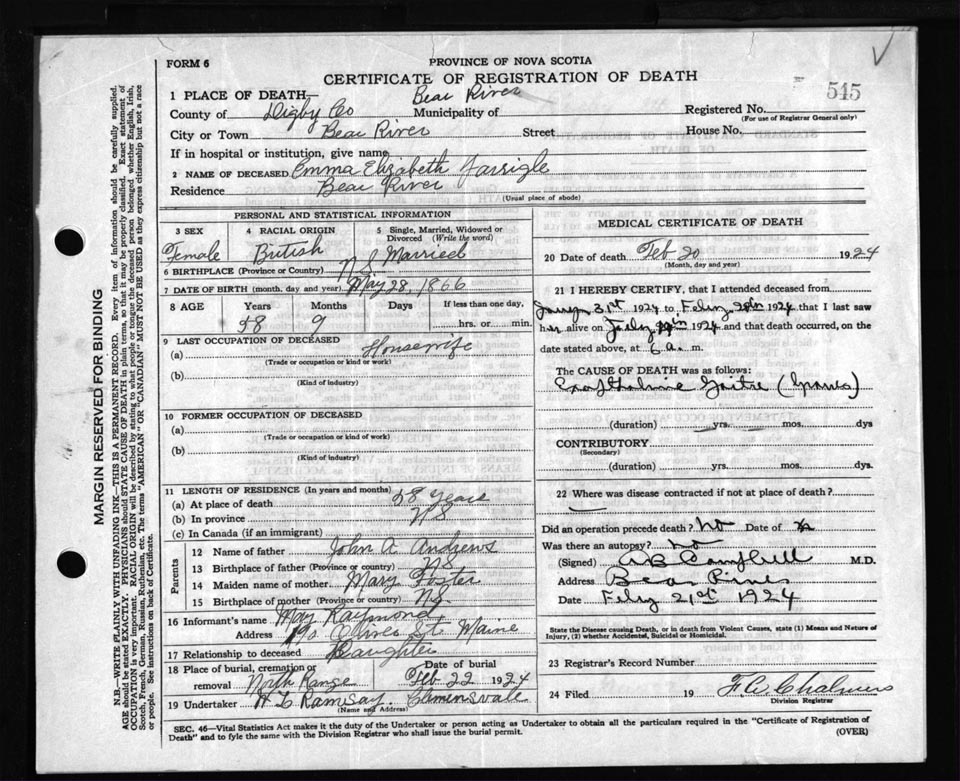 FORM 6
PROVINCE OF NOVA SCOTIA
CERTIFICATE OF REGISTRATION OF DEATH
545
1 PLACE OF DEATH— Bear River
County of Digby Co Municipality of
Registered No.
(For use of Registrar General only)
City or Town Bear River Street House No.
If in hospital or institution, give name
2 NAME OF DECEASED Emma Elizabeth
Residence Bear River
(Usual place of abode)
PERSONAL AND STATISTICAL INFORMATION
3 SEX
Female
4 RACIAL ORIGIN
British
5 Single, Married, Widowed or
Divorced (Write the word)
Married
6 BIRTHPLACE (Province or Country) N S
7 DATE OF BIRTH (month, day and year) May 28, 1866
8 AGE Years Months Days If less than one day,
58 9 hrs. or min.
9 LAST OCCUPATION OF DECEASED
(a) Housewife
(Trade or occupation or kind or work)
(b)
(Kind of industry)
10 FORMER OCCUPATION OF DECEASED
(a)
(Trade or occupation or kind of work)
(b)
(Kind of industry)
11 LENGTH OF RESIDENCE (In years and months)
(a) At place of death 58 years
(b) In province N S
(c) In Canada (if an immigrant)
Parents
12 Name of father John A Andrews
13 Birthplace of father (Province or country) N S
14 Maiden name of mother Mary Foster
15 Birthplace of mother (Province or country) N S.
16 Informant's name May Raymond
Address St. Maine
17 Relationship to deceased Daughter
18 Place of burial, cremation or
removal North Range
Date of burial
Feb 22 1924
19 Undertaker Ramsay Clemensvale
(Name and Address)
MEDICAL CERTIFICATE OF DEATH
20 Date of death Feb 20 1924
(Month, day and year)
21 I HEREBY CERTIFY, that I attended deceased from
31st 1924 to Feby 20th 1924 that I last saw
her alive on 1924 and that death occurred, on the
date stated above, at 6 a. m.
The CAUSE OF DEATH was as follows:
Exophthalmic Goitre (Graves)
(duration) yrs. mos. dys
CONTRIBUTORY
(Secondary)
(duration) yrs. mos. dys.
22 Where was disease contracted if not at place of death?
Did an operation precede death? No Date of
Was there an autopsy? No
(Signed) A B Campbell M.D.
Address Bear River
Date Feby 21st 1924
State the Disease causing Death, or in death from Violent Causes, state (1) Means and Nature of
Injury, (2) whether Accidental, Suicidal or Homicidal.
23 Registrar's Record Number
24 Filed 19 F W Chalmers
Division Registrar
SEC. 46—Vital Statistics Act makes it the duty of the Undertaker or person acting as Undertaker to obtain all the particulars required in the "Certificate of Registration of
Death" and to fyle the same with the Division Registrar who shall issue the burial permit.
(OVER)
MARGIN RESERVED FOR BINDING
N.B.—WRITE PLAINLY WITH UNFADING INK—THIS IS A PERMANENT RECORD. Every item of information should be carefully supplied.
AGE should be stated EXACTLY. PHYSICIANS should STATE CAUSE OF DEATH in plain terms, so that it may be properly classified. Exact statement of
OCCUPATION is very important. RACIAL ORIGIN will be described by stating to what people or tongue the deceased person belonged whether English, Irish,
Scotch, French, German, Russian, Ruthenian, etc. The terms "AMERICAN" or "CANADIAN" MUST NOT BE USED as they express citizenship but not a race
or people. See instructions on back of Certificate.